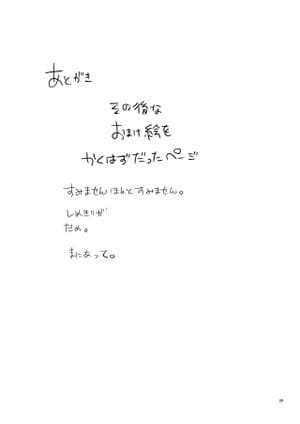 あとがき
その後な
おまけ絵を
かくはずだったページ
すみませんほんとすみません。
しめきりが
だめ。
まにあって。